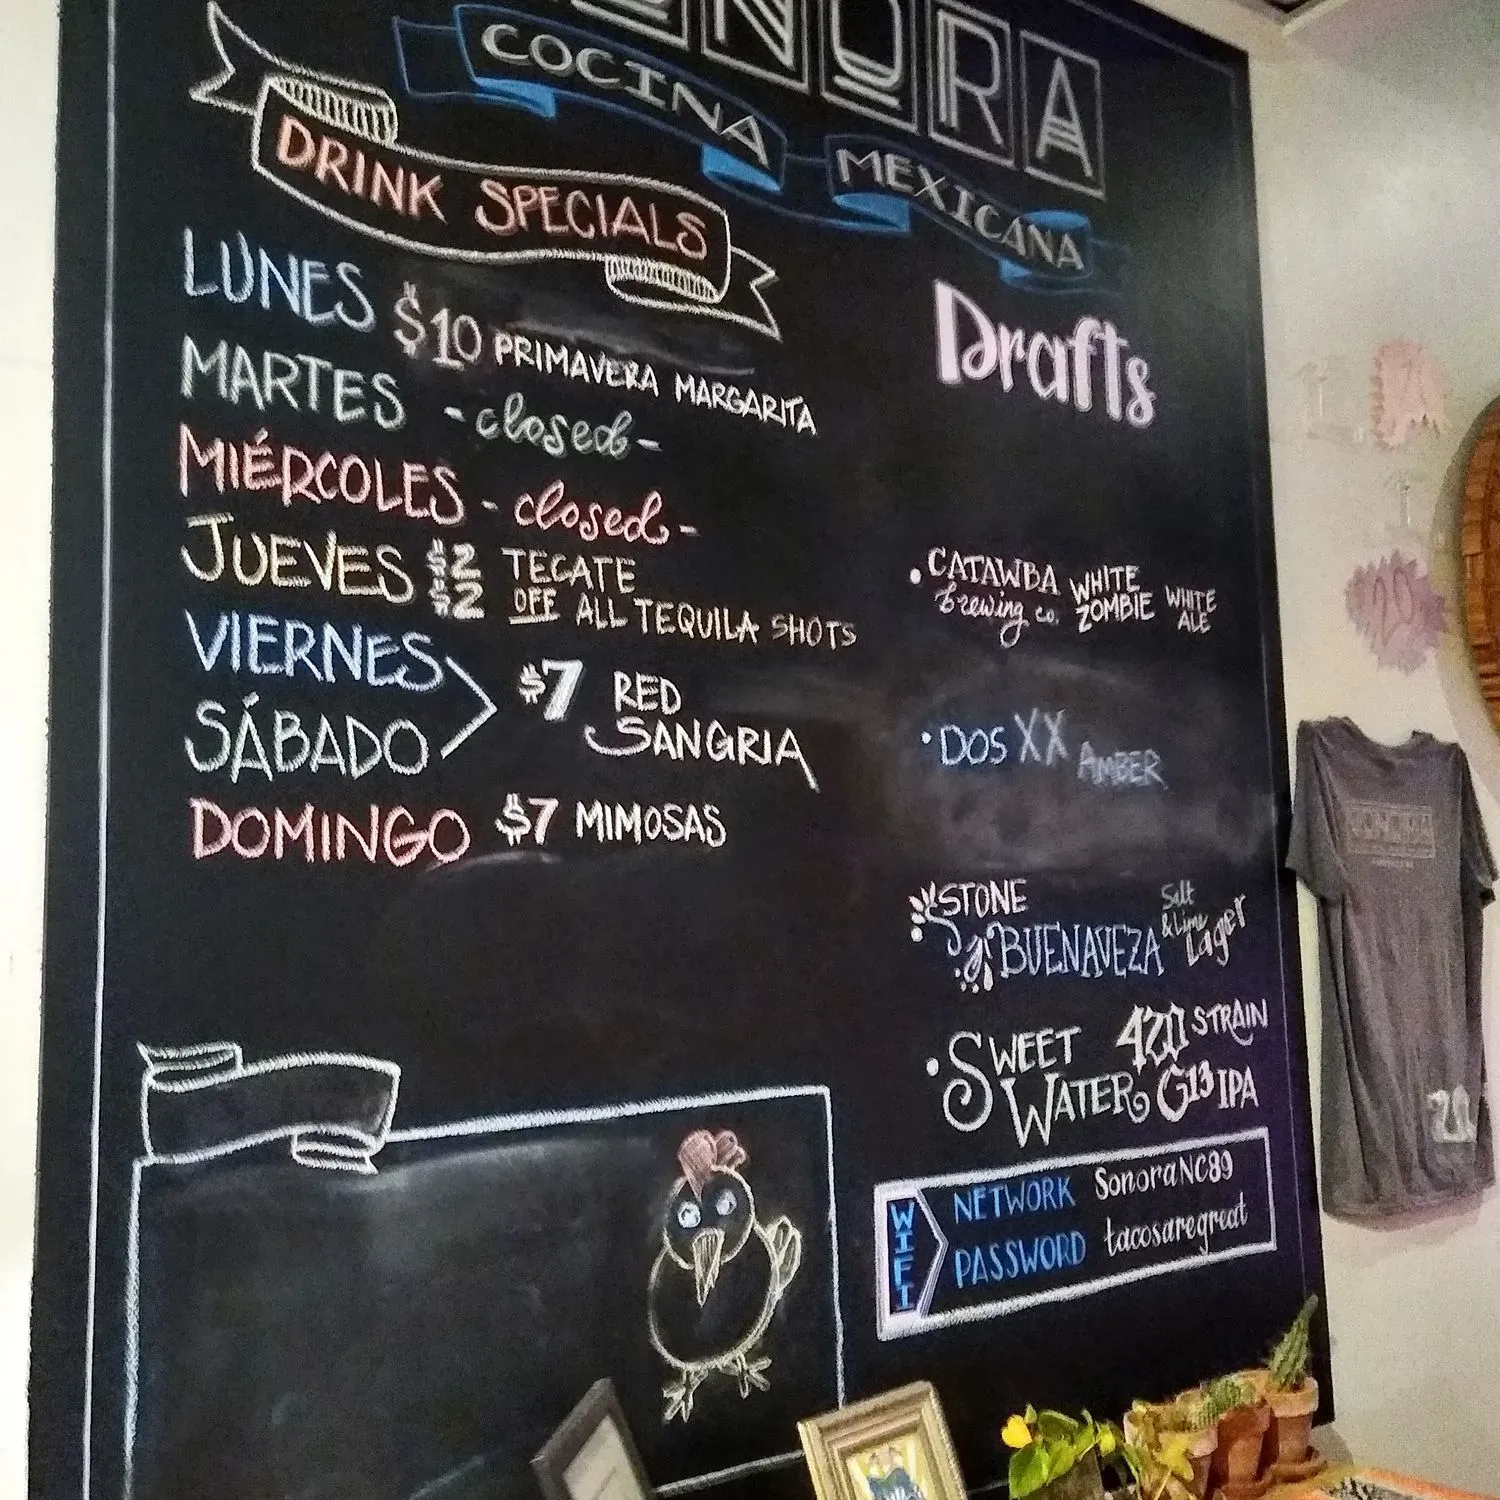 COCINA MEXICANA
DRINK SPECIALS
LUNES $10 PRIMAVERA MARGARITA
MARTES -closed-
MIÉRCOLES -closed-
JUEVES $2 TECATE
$2 OFF ALL TEQUILA SHOTS
VIERNES
SÁBADO
$7 RED
SANGRIA
DOMINGO $7 MIMOSAS
Drafts
• CATAWBA WHITE WHITE
brewing co. ZOMBIE ALE
• DOS XX AMBER
STONE
BUENAVEZA Salt
& Lime
Lager
• SWEET 420 STRAIN
WATER G13 IPA
WIFI
NETWORK SonoraNC89
PASSWORD tacosaregreat
SONORA
20